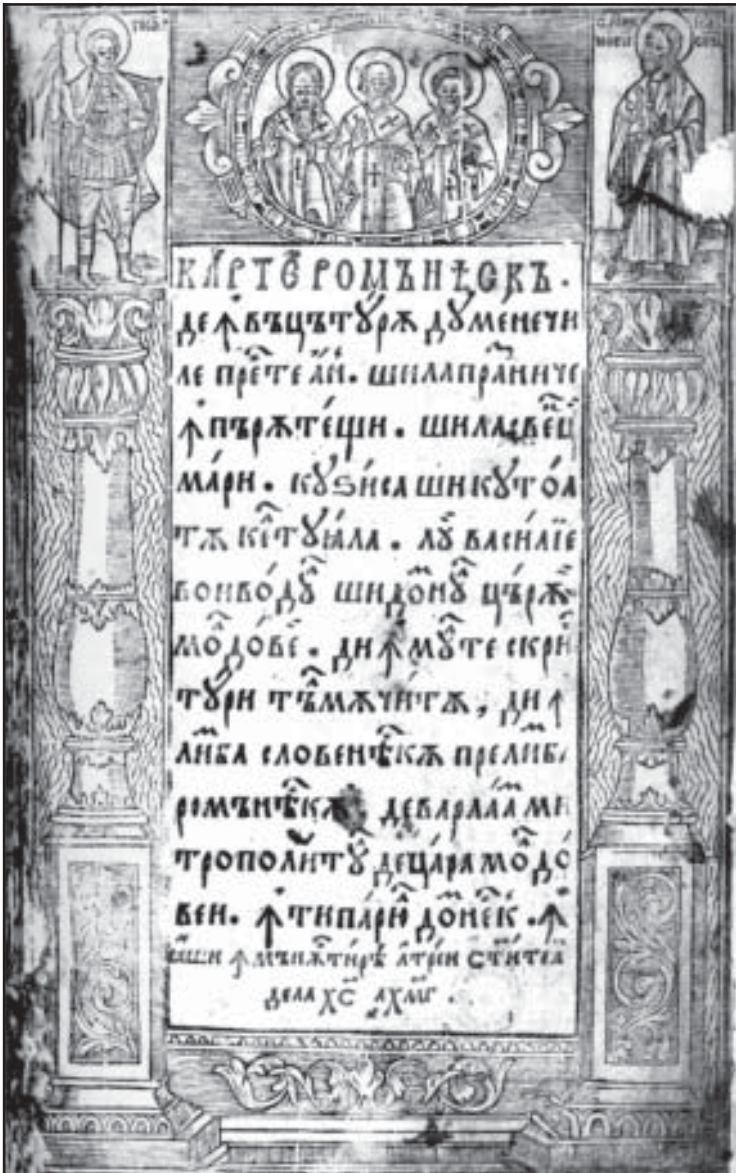 КАРТЕ РОМѪНѢСКЪ.
ДЕ ꙟВЪЦЪТꙋРѪ ДꙋМЕНЕЧИ
ЛЕ ПРЕ́СТЕ А҆Н. ШИ ЛА ПРАЗНИЧЕ
ꙟПЪРѪТЕ́ЩИ. ШИ ЛА СВЕ҆Ц
МА́РИ. КꙋЅИ́СА ШИ КꙋТО́А
ТѪ КЕ҆ЛТꙋІА́ЛА. ЛꙋЙ ВАСИ́ЛЇЕ
ВОИВО́Дꙋ҆Л ШИ ДО҆МНꙋ҆Л ЦЪ́РѪЙ
МО҆ЛДО́ВЕЙ. ДИ ꙟ МꙋЛТЕ СКРИ
ПТꙋ́РИ ТѪЛМѪЧИ́ТѪ, ДИ ꙟ
ЛИ́МБА СЛОВЕНѢ҆СКѪ ПРЕ ЛИ҆МБА
РОМѪНѢ҆СКѪ ДЕ ВАРЛАА́М МИ
ТРОПОЛИ́ТꙋЛ ДЕ ЦА́РА МО҆ЛДО́
ВЕИ. ꙟ ТИПА́РЮЛ ДО҆МНЕ҆СК. ꙟ
ꙟ МЪНѪСТИ́РѢ А ТРЕИ СТ҃ИТЕЛИ
ДЕ ЛА ХС҃ ҂АХМГ.